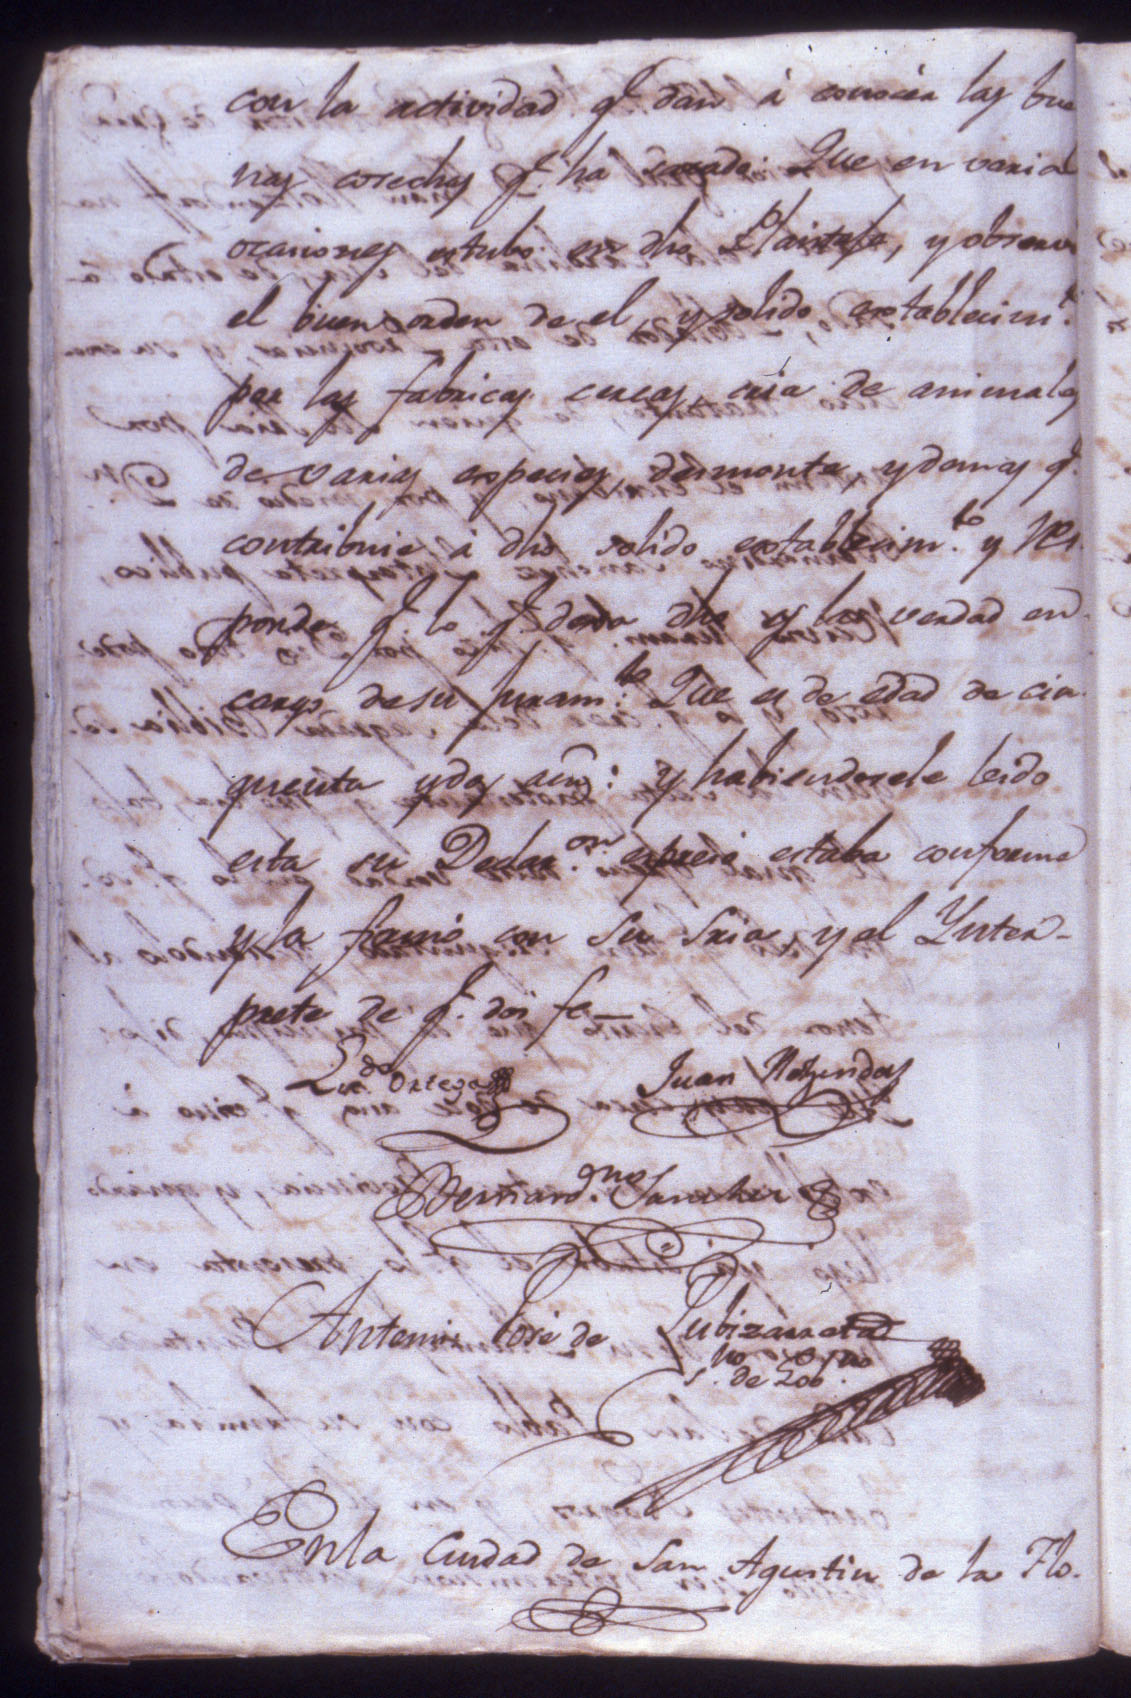 con la actividad q.e dan á conocér las bue
nas cosechas q.e ha sacado: Que en varias
ocaciones estubo en dho Plantage, y observo
el buen orden de el, y solido establecim.to
por las fabricas, cercas, cria de animales
de varias especies, desmonte, y demas q.e
contribuie á dho solido establecim.to y Res
ponde q.e lo q.e deva dho es la verdad en
cargo de su juram.to Que es de edad de cin
quenta y dos años: y habiendosele leido
esta su Declar.on expresó estaba conforme
y la firmó con Su Sria, y el Ynter-
prete de q.e doi fe—
Liz.do Ortega Juan
Bernard.no Sanchez
Antemi Jose de Zubizarreta
s.no de Gov.no
En la Ciudad de San Agustin de la Flo.